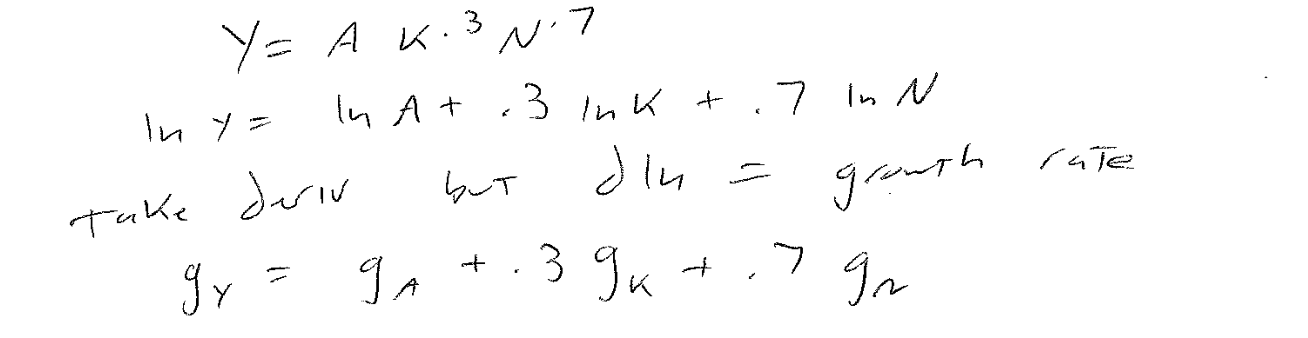 Y = A K^.3 N^.7
ln Y = ln A + .3 ln K + .7 ln N
take deriv but dln = growth rate
g_Y = g_A + .3 g_K + .7 g_N